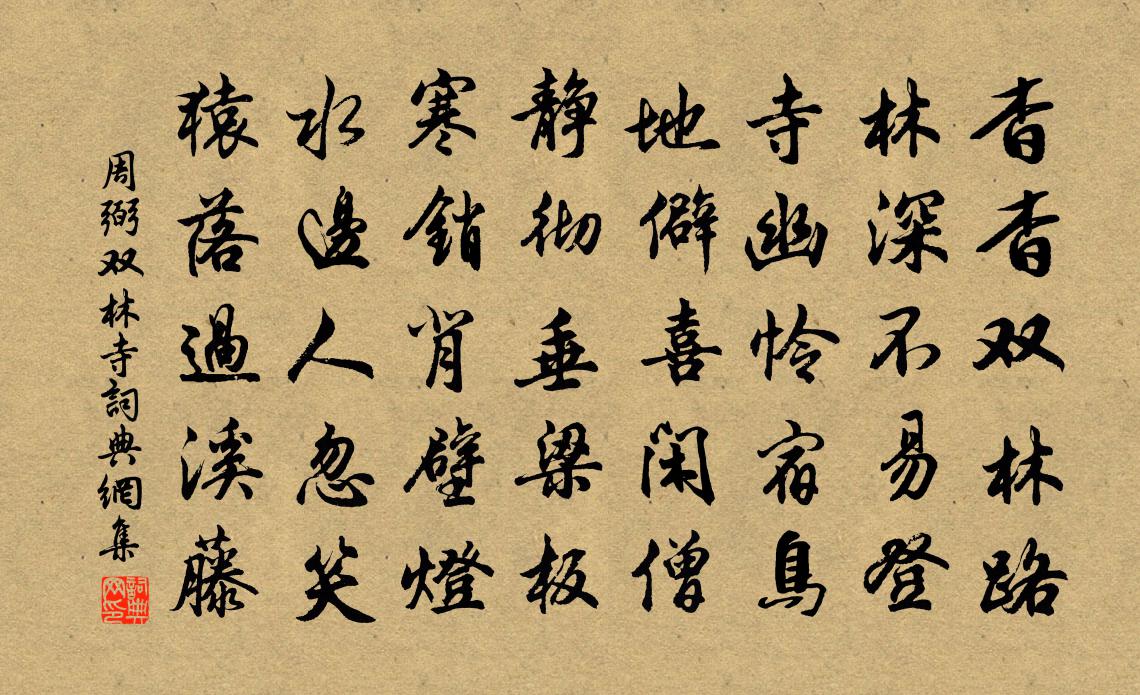 杳杳双林路
林深不易登
寺幽怜宿鳥
地僻喜閑僧
静彻垂梁板
寒銷背壁燈
水邊人忽笑
猿落過溪藤
周弼双林寺詞典網集
詞典网印